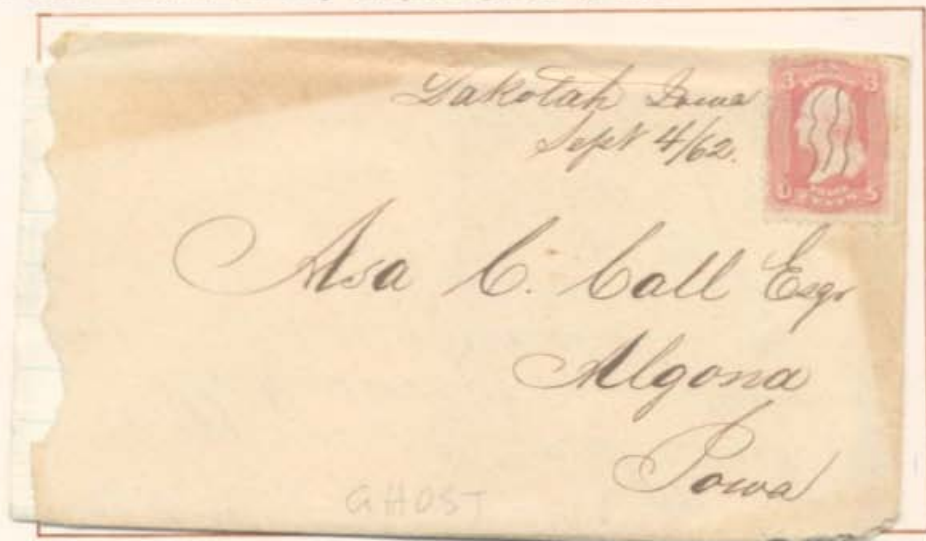 Dakotah Iowa
Sept 4/62.
3 3
U S
Asa C. Call Esqr
Algona
Iowa
GHOST